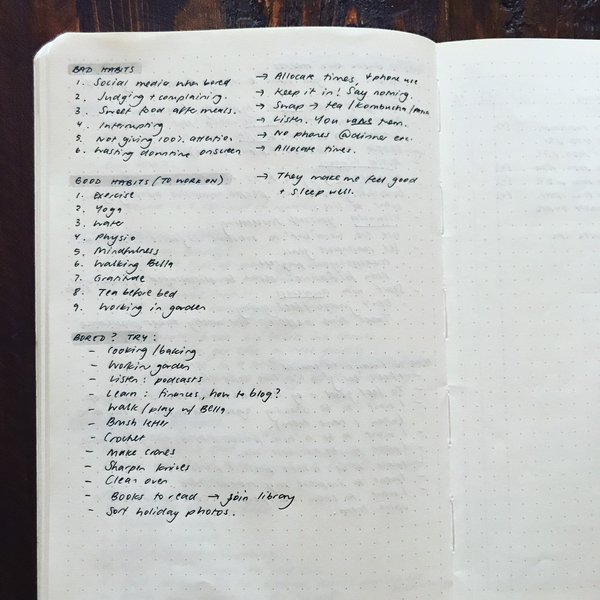 BAD HABITS
1. Social media when bored → Allocate times, + phone use
2. Judging + complaining. → Keep it in! Say nothing.
3. Sweet food after meals. → Swap → tea / kombucha /
4. Interrupting → Listen. You them.
5. Not giving 100% attention → No phones @dinner etc.
6. Wasting downtime onscreen → Allocate times.
GOOD HABITS (TO WORK ON) → They make me feel good
1. Exercise + sleep well.
2. Yoga
3. Water
4. Physio
5. Mindfulness
6. Walking Bella
7. Gratitude
8. Tea before bed
9. Working in garden
BORED? TRY:
- Cooking / baking
- Work in garden
- Listen: podcasts
- Learn: finances, how to blog?
- Walk / play w/ Bella
- Brush letter
- Crochet
- Make cranes
- Sharpen knives
- Clean oven
- Books to read → join library
- Sort holiday photos.